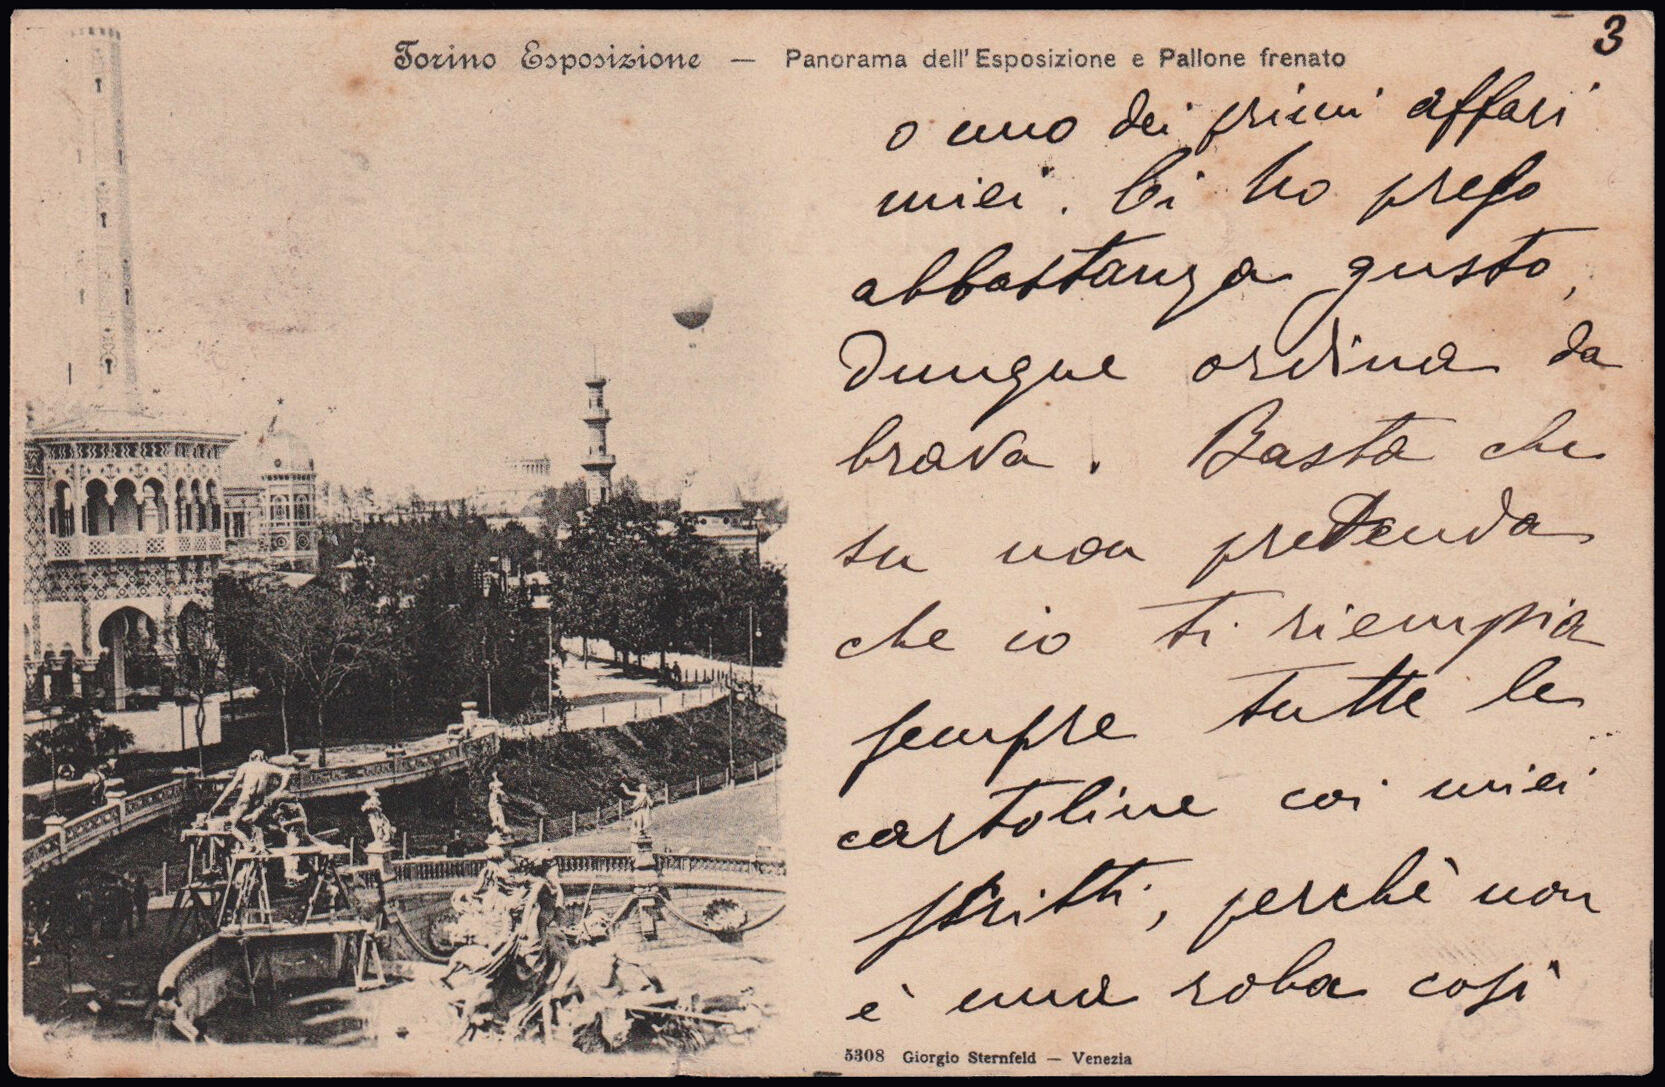 3
Torino Esposizione — Panorama dell'Esposizione e Pallone frenato
o uno dei primi affari
miei. Ci ho preso
abbastanza gusto,
Dunque ordina da
brava. Basta che
tu non pretenda
che io ti riempia
sempre tutte le
cartoline coi miei
scritti, perchè non
è una roba così
5308 Giorgio Sternfeld — Venezia